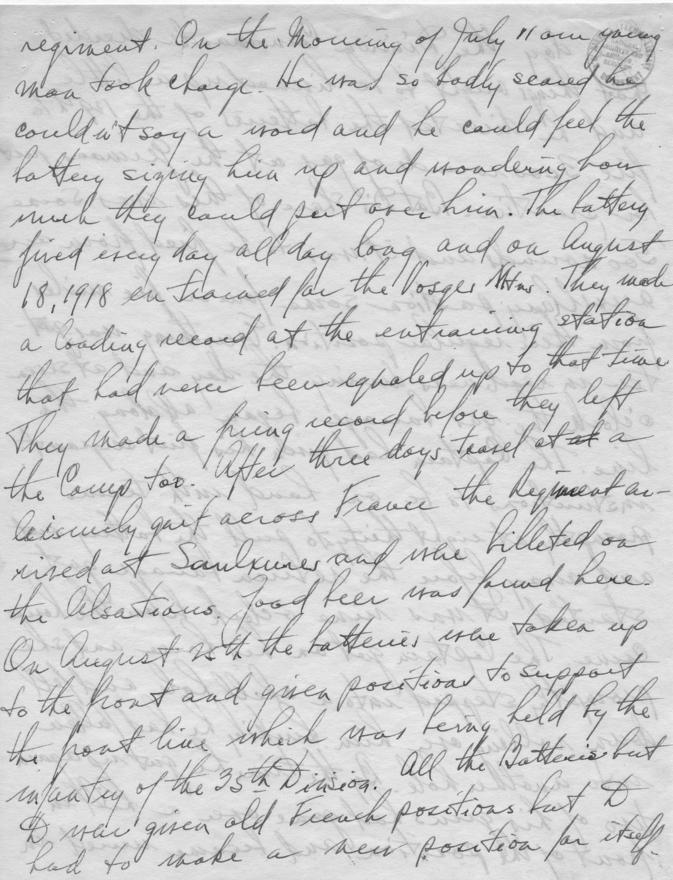 regiment. On the Morning of July 11 our young
man took charge. He was so badly scared he
couldn't say a word and he could feel the
battery sizing him up and wondering how
much they could put over him. The battery
fired every day all day long and on August
18, 1918 entrained for the Vosges Mtns. They made
a loading record at the entraining station
that had never been equaled up to that time
They made a firing record before they left
the Camp too. After three days travel at at a
leisurely gait across France the Regiment ar-
rived at Saulxures and were billeted on
the Alsatians. Good beer was found here.
On August the batteries were taken up
to the front and given positions to support
the front line which was being held by the
infantry of the 35th Division. All the Batteries but
D was given old French positions but D
had to make a new position for itself.